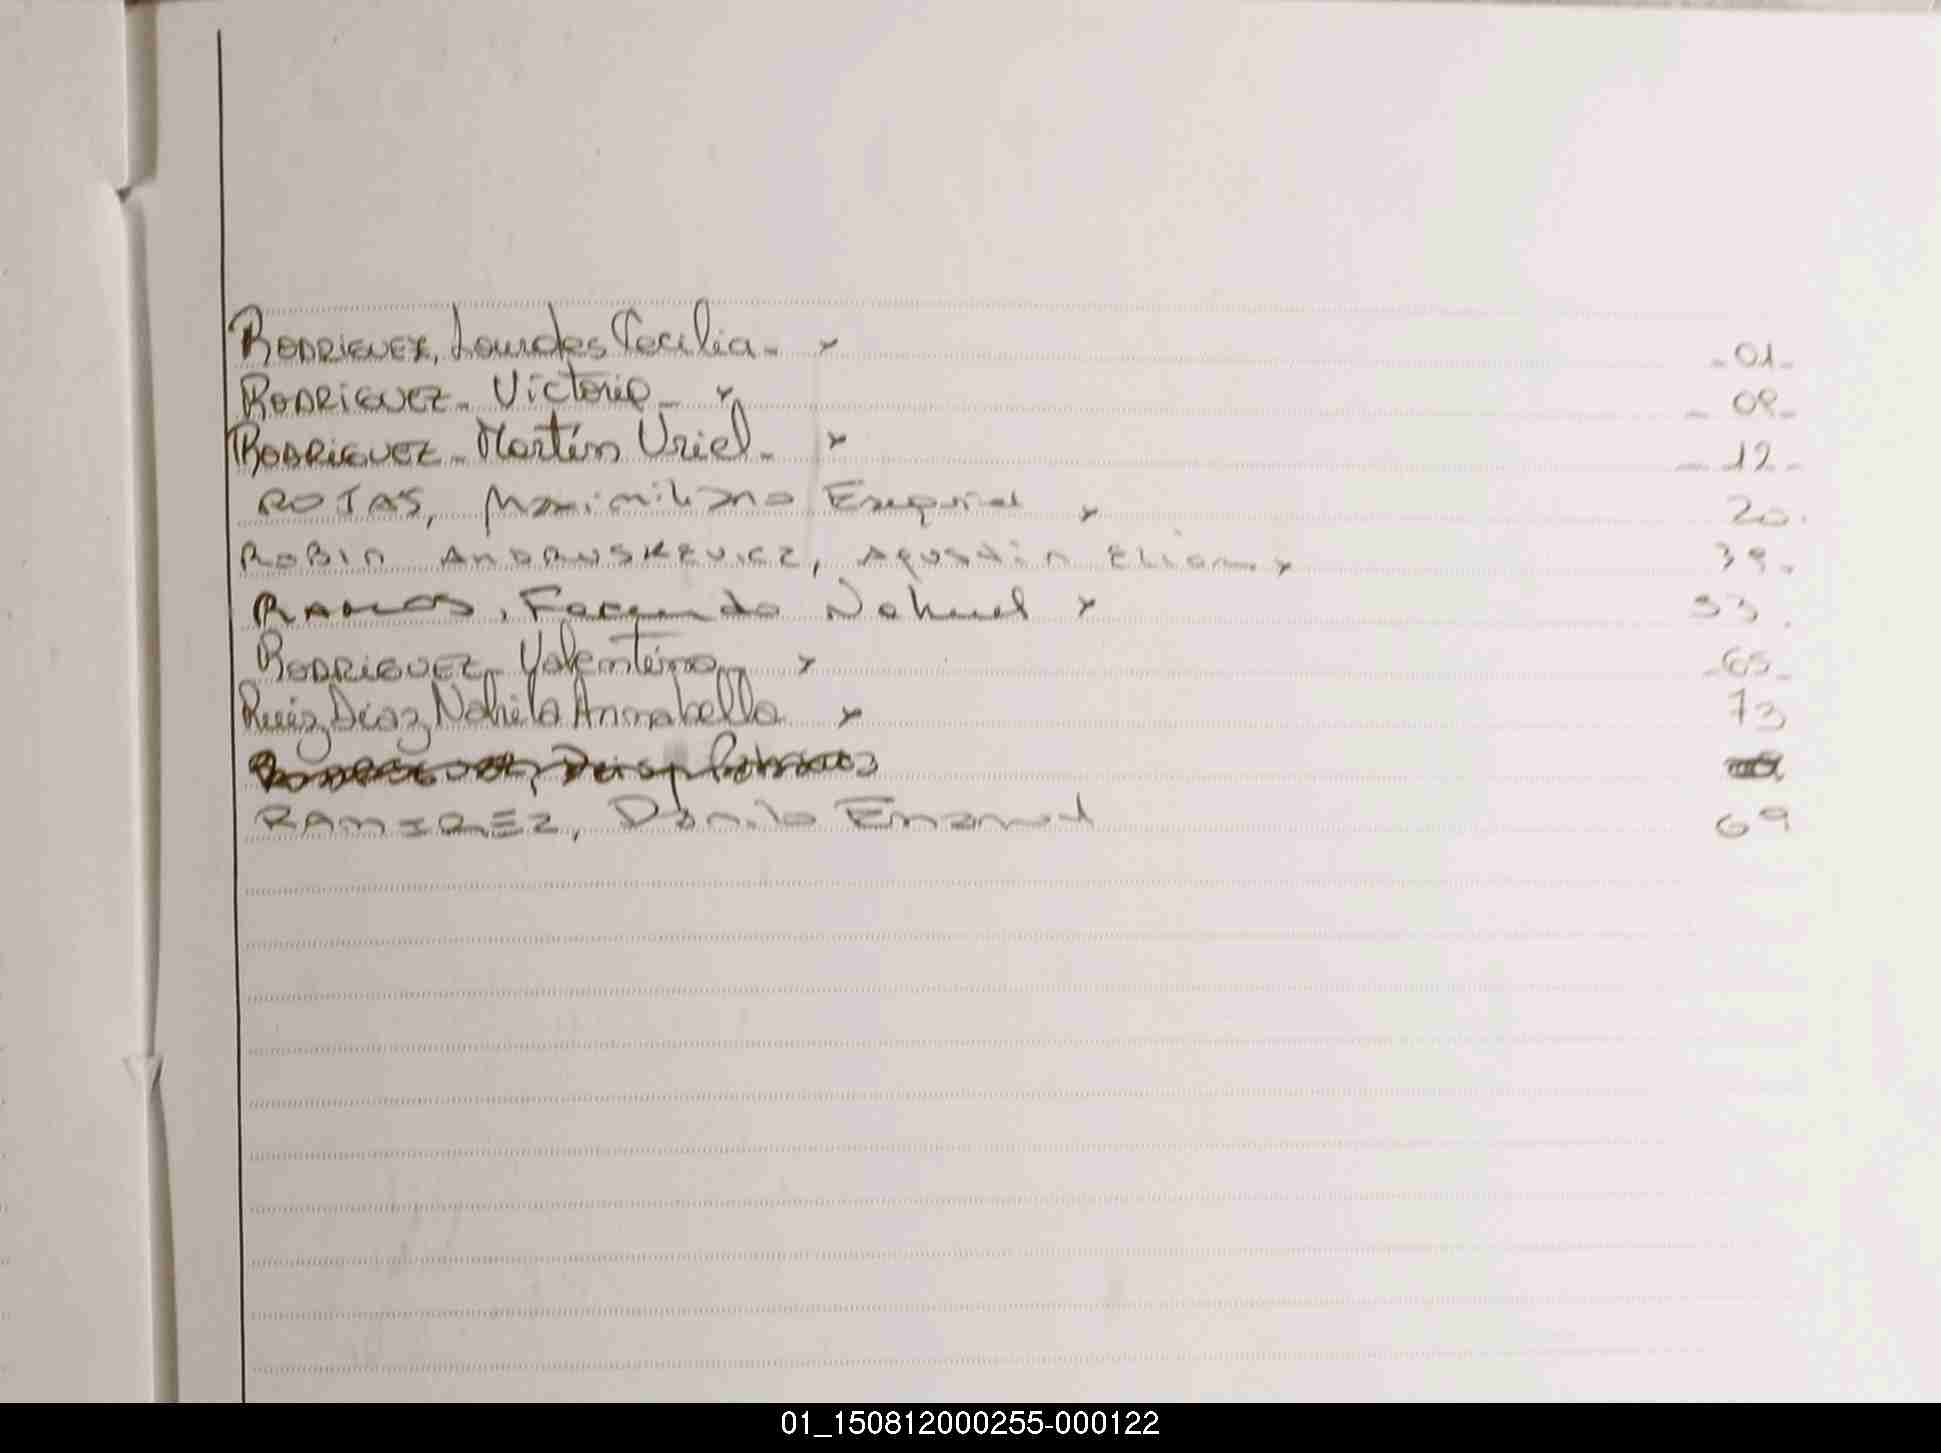 RODRIGUEZ, Lourdes Cecilia - x -01-
RODRIGUEZ - Victoria - x - 08-
RODRIGUEZ - Martín Uriel - x - 12 -
ROJAS, Maximiliano Exequiel x 20.
ROBIN ANDRUSKEVICZ, AGUSTIN Elian. x 39.
RAMOS, Facundo Nahuel x 53.
RODRIGUEZ - Valentino x -65-
Ruiz Diaz Nahila Annabella x 73
RAMIREZ, Danilo Emanuel 69
01_150812000255-000122